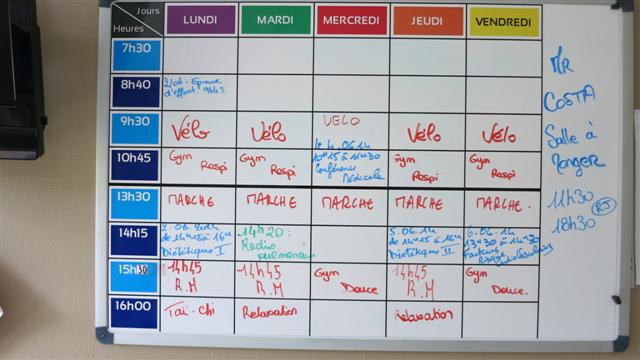 Jours
Heures
LUNDI MARDI MERCREDI JEUDI VENDREDI
7h30
8h40
2/06 - Epreuve
d'effort 9h45
9h30
Vélo Vélo VELO Vélo Vélo
10h45
Gym
Respi
Gym
Respi
le 4.06.14
10h45 à 11h30
Conférence
Médicale
Gym
Respi
Gym
Respi
13h30
MARCHE MARCHE MARCHE MARCHE MARCHE.
14h15
2.06.2014
de 14h15 à 16h
Diététique I
14h20:
Radio
pulmonaire
5.06.14
de 14h15 à 16h
Diététique II
6.06.14
13h30 à 14h30
Facteurs
15h30
14h45
R.M
14h45
R.M
Gym
Douce
14h45
R.M
Gym
Douce.
16h00
Tai-Chi Relaxation Relaxation
MR
COSTA
Salle à
manger
11h30
18h30
RJ